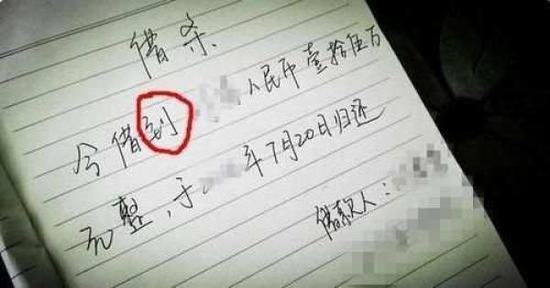 借条
今借到 人民币壹拾伍万
元整，于 年7月20日归还
借款人：